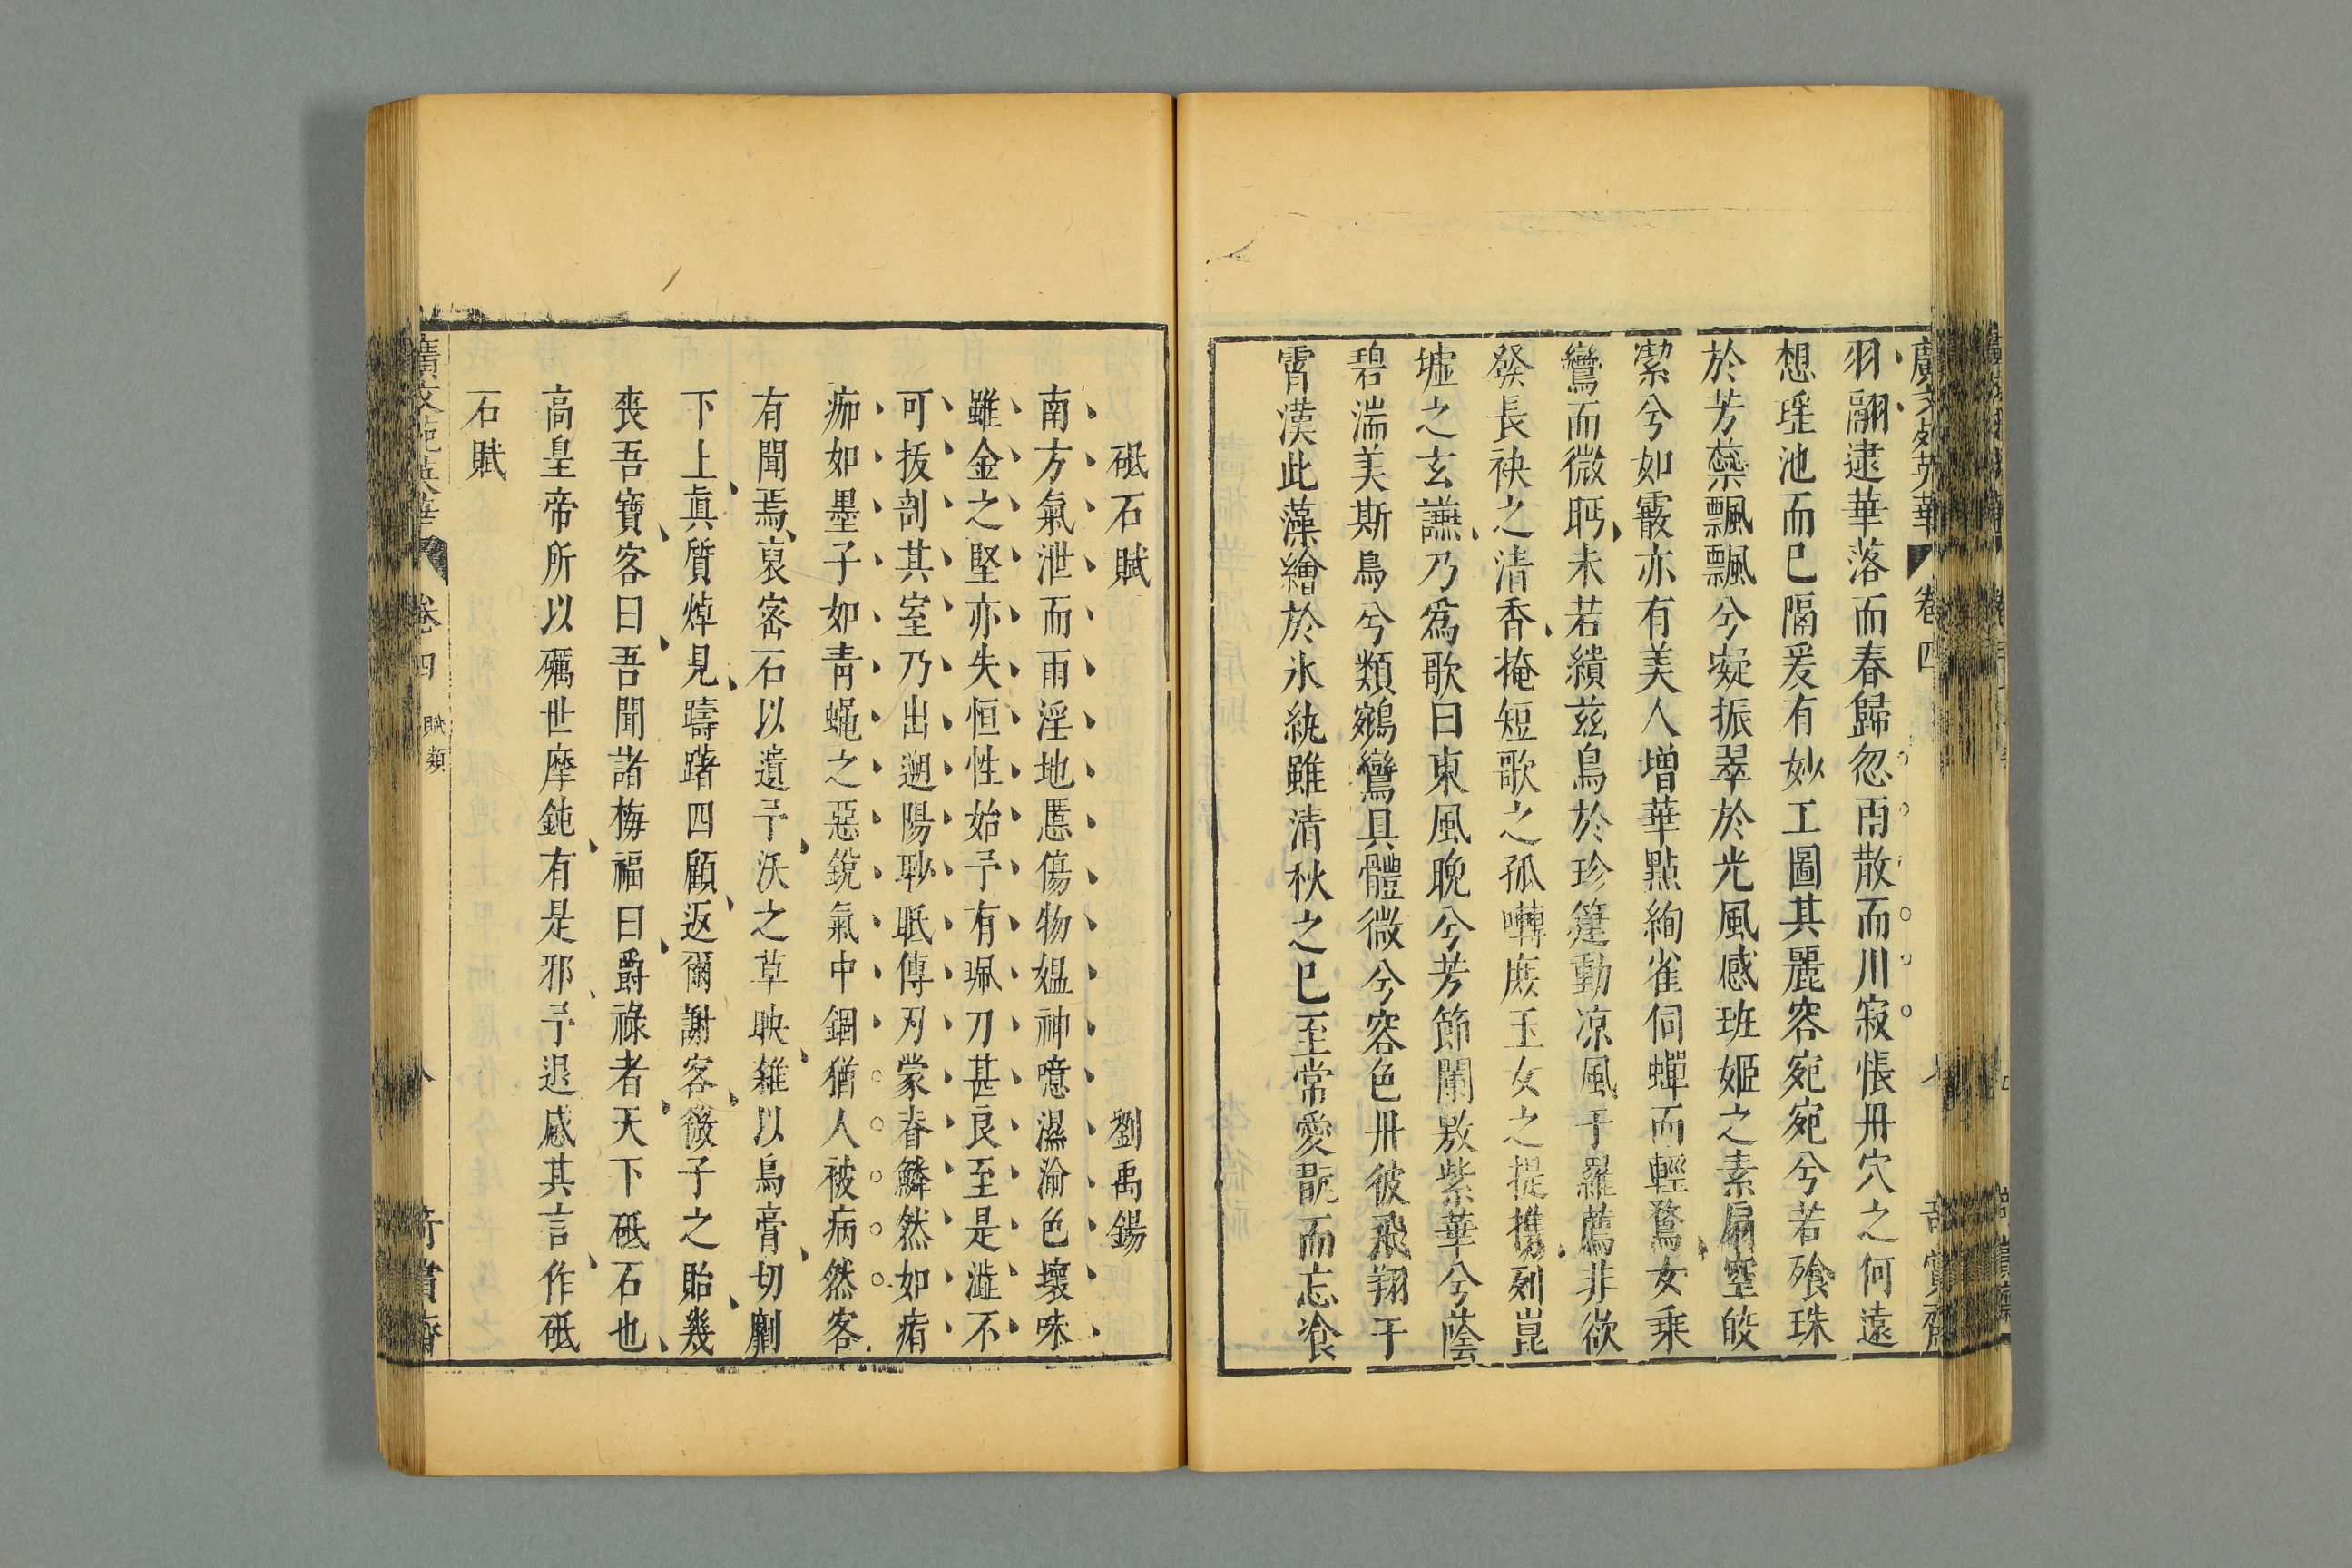 廣文苑英華 卷四
羽翮逮華落而春歸忽雨散而川寂悵丹穴之何遠
想瑶池而巳隔爰有妙工圖其麗容宛宛兮若飡珠
於芳蘂飄飄兮疑振翠於光風感班姬之素扇空皎
潔兮如霰亦有美人增華點絢雀伺蟬而輕鶩女乗
鸞而微眄未若繢茲鳥於珍箑動凉風于羅薦非欲
發長袂之清香掩短歌之孤囀庶玉女之提攜列崑
墟之玄讌乃爲歌曰東風晚兮芳節闌敷紫華兮蔭
碧湍美斯鳥兮類鵷鸞具體微兮容色丹彼飛翔于
霄漢此藻繪於氷紈雖清秋之巳至常愛翫而忘飡
砥石賦 劉禹錫
南方氣泄而雨淫地慝傷物媪神噫濕渝色壞味
雖金之堅亦失恒性始予有珮刀甚良至是澁不
可拔剖其室乃出遡陽耿眡傅刃蒙脊鱗然如痏
痂如墨子如青蠅之惡銳氣中錮猶人被病然客
有聞焉裒密石以遺予沃之草映雜以鳥膏切劘
下上眞質焯見躊躇四顧返爾謝客微子之貽幾
丧吾寶客曰吾聞諸梅福曰爵祿者天下砥石也
高皇帝所以礪世摩鈍有是邪予退感其言作砥
石賦
廣文苑英華 卷四 賦類